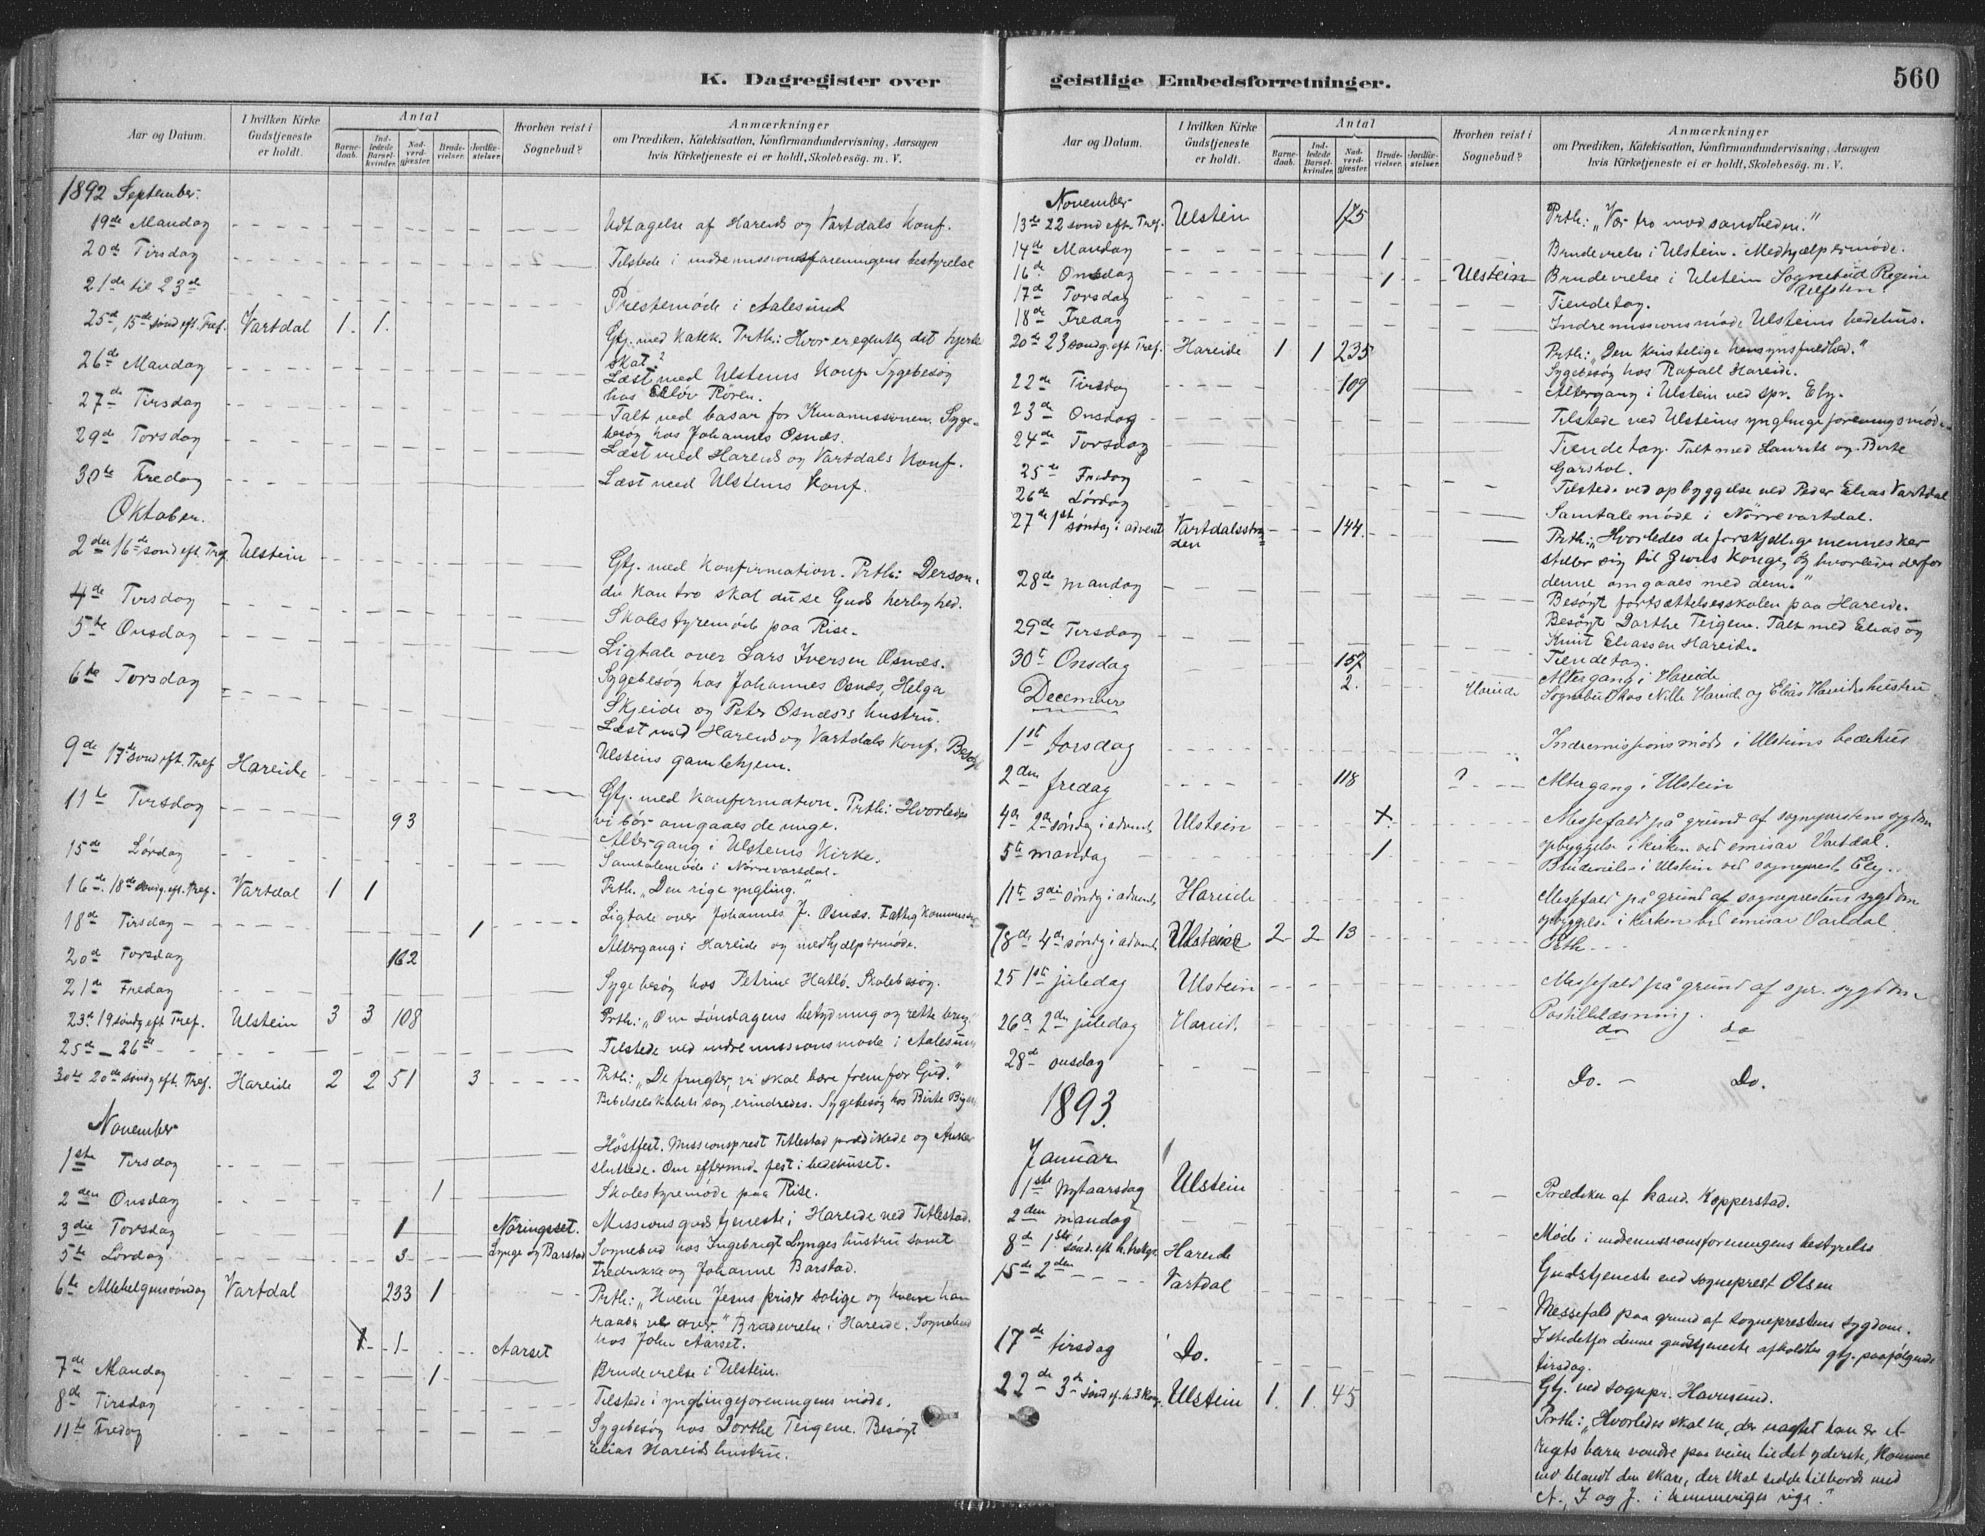 K. Dagregister over
Aar og Datum.
I hvilken Kirke Gudstjeneste er holdt.
Antal
Barnedaab.
Indledede Barselkvinder.
Nadverdgjæster.
Brudevielser.
Jordfæstelser.
Hvorhen reist i Sognebud?
Anmærkninger
om Prædiken, Katekisation, Konfirmandundervisning, Aarsagen
hvis Kirketjeneste ei er holdt, Skolebesög. m. V.
1892 September.
19de Mandag Udtagelse af Hareids og Vartdals Konf.
20de Tirsdag Tilstede i indremissionsforeningens bestyrelse
21de til 23de Prestemøde i Aalesund
25de, 15de sønd eft. Tref. Vartdal 1. 1. Gtj. med Katek. Prth: Hvor er egentlig dit hjerte
skat?
26de Mandag Læst med Ulsteins Konf. Sygebesøg
hos Røren.
27de Tirsdag Talt ved basar for Kinamissionen. Syge-
besøg hos Johannes Osnæs.
29de Torsdag Læst med Hareids og Vartdals Konf.
30te Fredag Læst med Ulsteins Konf.
Oktober.
2den 16de sønd eft. Tref. Ulstein Gtj. med Konfirmation. Prth: Dersom
du kan tro skal du se Guds herlighed.
4de Tirsdag Skolestyremøde paa Rise.
5te Onsdag Ligtale over Lars Iversen Osnæs.
6te Torsdag Sygebesøg hos Johannes Osnæs, Helga
Skjeide og Peter Osnæs's hustru.
Læst med Hareids og Vartdals Konf. Besøgt
Ulsteins gamlehjem.
9de 17de sønd eft. Tref Hareide Gtj. med Konfirmation. Prth: Hvorledes
vi bør omgaaes de unge.
11te Tirsdag 93 Altergang i Ulsteins Kirke.
15de Lørdag Samtalemøde i Nørrevartdal.
16de. 18de søndg. eft. Tref. Vartdal 1 1 Prth. „Den rige yngling."
18de Tirsdag 1 Ligtale over Johannes J. Osnæs. Fattigkommission
20de Torsdag 162 Altergang i Hareide og medhjælpermøde.
21de Fredag Sygebesøg hos Petrine Hatlø. Skolebesøg.
23de 19 søndg eft Tref. Ulstein 3 3 108 Prth: „Om søndagens betydning og rette brug."
25de – 26de Tilstede ved indremissionsmøde i Aalesund
30te 20de søndg eft. Tref. Hareide 2 2 51 3 Prth: „De frugter, vi skal bære frem for Gud."
Bibelselskabets sag erindredes. Sygebesøg hos Birte
November
1ste Tirsdag Høstfest. Missionsprest Titlestad prædikede og
sluttede. Om eftermid. fest i bedehuset.
2den Onsdag 1 Skolestyremøde paa Rise.
3die Torsdag 1 Nöringset. Missionsgudstjeneste i Hareide ved Titlestad.
5te Lørdag 3 Lynge og Barstad Sognebud hos Ingebrigt Lynges hustru samt
Fredrikke og Johanne Barstad.
6te Allehelgenssøndag Vartdal 233 1 Prth: „Hvem Jesus priser salige og hvem han
raaber ve over." Brudevielse i Hareide. Sognebud
1 Aarset hos John Aarset.
7de Mandag 1 Brudevielse i Ulstein.
8de Tirsdag Tilstede i ynglingeforeningens møde.
11te Fredag Sygebesøg hos Dorthe Teigene. Besøgt
Elias Hareids hustru.
geistlige Embedsforretninger.
560
Aar og Datum.
I hvilken Kirke Gudstjeneste er holdt.
Antal
Barnedaab.
Indledede Barselkvinder.
Nadverdgjæster.
Brudevielser.
Jordfæstelser.
Hvorhen reist i Sognebud?
Anmærkninger
om Prædiken, Katekisation, Konfirmandundervisning, Aarsagen
hvis Kirketjeneste ei er holdt, Skolebesög. m. V.
November
13de 22 sønd eft. Tref. Ulstein 175 Prth: „Vær tro mod sandheden."
14de Mandag 1 Brudevielse i Ulstein. Medhjælpermøde.
16de Onsdag 1 Ulstein Brudevielse i Ulstein Sognebud Regine
Ulstein
17de Torsdag Tiendetag.
18de Fredag Indremissionsmøde Ulsteins bedehus.
20de 23 søndg. eft Tref. Hareide 1 1 235 Prth: „Den kristelige hensynsfuldhed."
Sygebesøg hos Rafall Hareide.
22de Tirsdag 109 Altergang i Ulstein ved spr. Ely.
23de Onsdag Tilstede ved Ulsteins ynglingeforeningsmøde
24de Torsdag Tiendetag. Talt med Laurits og Birte
Garshol.
25de Fredag Tilstede ved opbyggelse ved Peder Elias Vartdal
26de Lørdag Samtalemøde i Nörrevartdal.
27de 1st søndag i advent Vartdalsstranden 144. Prth: „Hvorledes de forskjellige mennesker
stiller sig til Zions Konge, og hvorledes derfor
denne omgaaes med dem."
28de mandag Besøgt fortsættelsesskolen paa Hareide.
29de Tirsdag Besøgt Dorthe Teigene. Talt med Elias og
Knut Eliassen Hareide.
Tiendetag.
30te Onsdag 157 Altergang i Hareide
2. Hareide Sognebud hos Nille Hareid og Elias Hareids hustru.
December
1st torsdag Indremissionsmøde i Ulsteins bedehus
2den fredag 118 ? Altergang i Ulstein
4de 2den søndg i advent Ulstein Messefald på grund af sogneprestens sygdom
opbyggelse i kirken ved emisær Vartdal.
5te mandag 1 Brudevielse i Ulstein ved sogneprest Ely.
11te 3die søndg i advent Hareide Messefald på grund af sogneprestens sygdom
opbyggelse i kirken ved emisær Vartdal.
18de 4de søndg i advent Ulstein 2 2 13 Prth - - -
25 1ste juledag Ulstein Messefald på grund af spr. sygdom
Postillelæsning.
26de 2den juledag Hareid. do do
28de onsdag Do. – Do.
1893.
Januar
1ste Nytaarsdag Ulstein Prædiken af kand. Kopperstad.
2den mandag Møde i indremissionsforeningens bestyrelse
8de 1ste sønd. eft h. trekgr. Hareide Gudstjeneste ved sogneprest Olsen
15de 2den - - - Vartdal Messefald paa grund af sogneprestens sygdom.
Istedetfor denne gudstjeneste afholdtes gtj. paafølgende
tirsdag.
17de tirsdag Do. Gtj. ved sognepr. Havnsund.
22de 3de sønd ef. h. 3 Kong. Ulstein 1. 1. 45 Prth: „Hvorledes skal en, der uagtet han er et
rigets barn vandre paa veien til det yderste, komme
ind blandt den skare, der skal sidde tilbords med
A., I og J. i himmeriges rige."